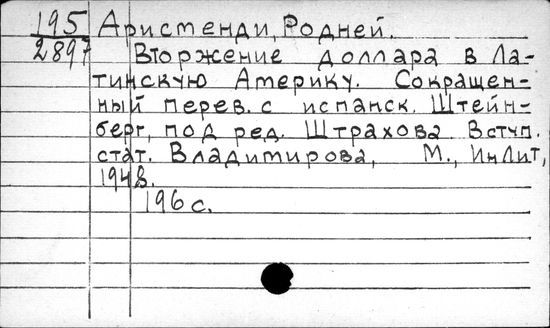 195 Аристенди, Родней.
2897 Вторжение доллара в Ла-
тинскую Америку. Сокращен-
ный перев. с испанск. Штейн-
берг, под ред. Штрахова. Вступ.
стат. Владимирова, М., ИнЛит,
1948.
196 с.